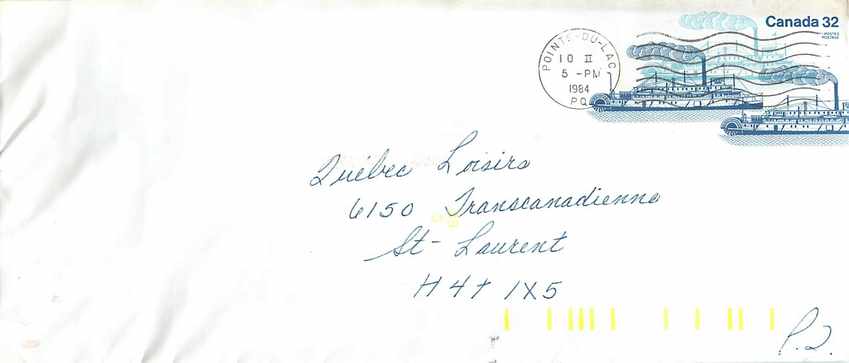 Canada 32
POSTES
POSTAGE
POINTE-DU-LAC
10 II
5 -PM
1984
P.Q.
Québec Loisirs
6150 Transcanadienne
St-Laurent
H4T 1X5
P.Q.